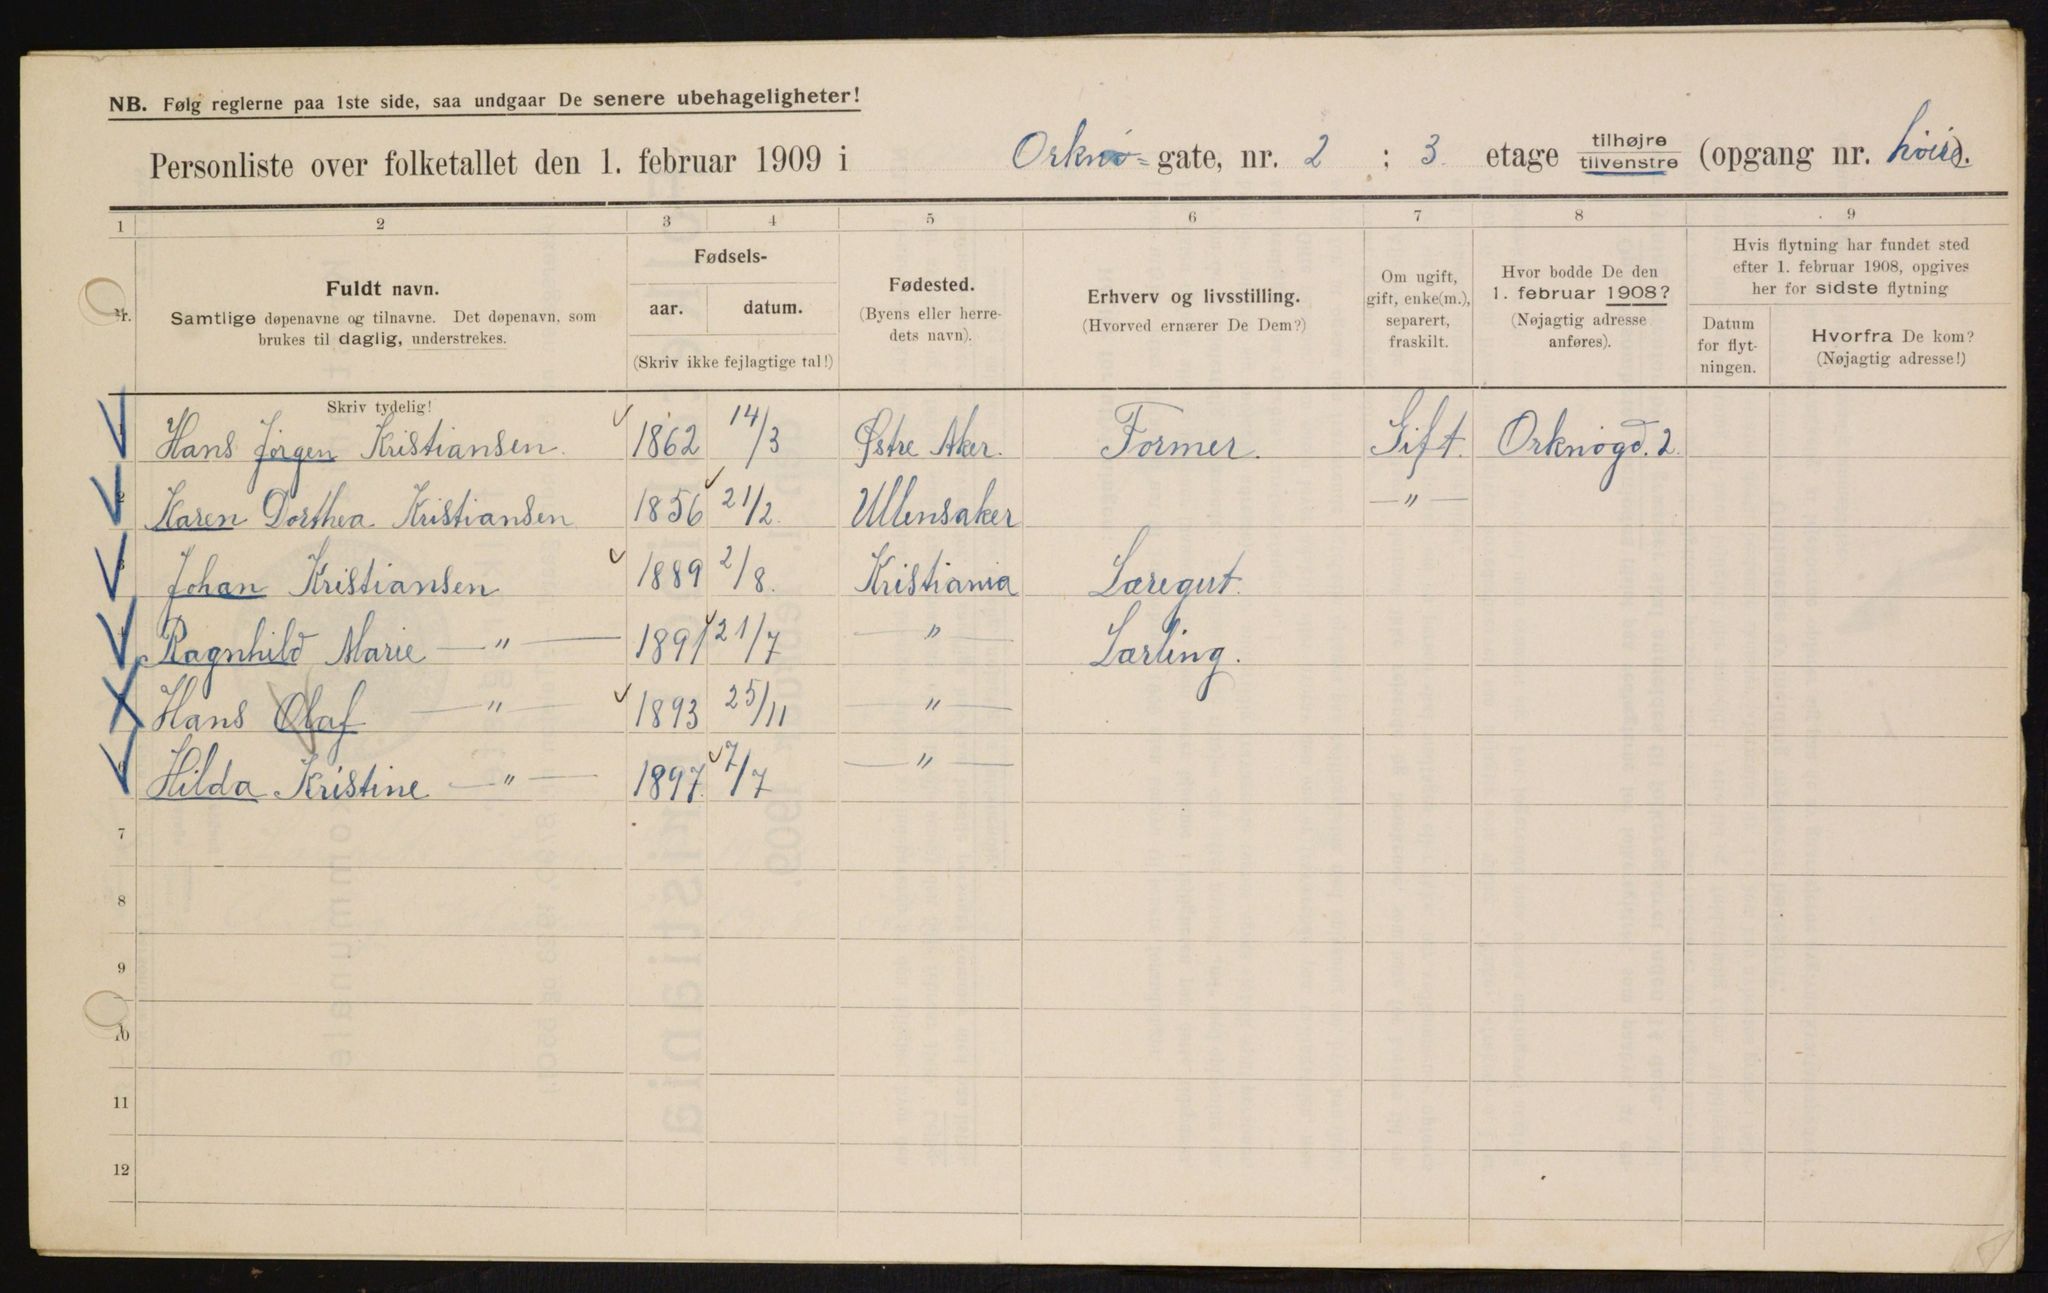 NB. Følg reglerne paa 1ste side, saa undgaar De senere ubehageligheter!
Personliste over folketallet den 1. februar 1909 i Orknø= gate, nr. 2 ; 3 etage tilhøjre tilvenstre (opgang nr. ).
1 2 3 4 5 6 7 8 9
Nr.
Fuldt navn.
Samtlige døpenavne og tilnavne. Det døpenavn, som
brukes til daglig, understrekes.
Skriv tydelig!
Fødsels-
aar. datum.
(Skriv ikke fejlagtige tal!)
Fødested.
(Byens eller herre-
dets navn).
Erhverv og livsstilling.
(Hvorved ernærer De Dem?)
Om ugift,
gift, enke(m.),
separert,
fraskilt.
Hvor bodde De den
1. februar 1908?
(Nøjagtig adresse
anføres).
Hvis flytning har fundet sted
efter 1. februar 1908, opgives
her for sidste flytning
Datum
for flyt-
ningen.
Hvorfra De kom?
(Nøjagtig adresse!)
Hans Jørgen Kristiansen. 1862 14/3 Østre Aker. Former. Gift. Orknøgd. 2.
Karen Dorthea Kristiansen 1856 21/2. Ullensaker — " —
Johan Kristiansen 1889 2/8. Kristiania Læregut.
Ragnhild Marie — " — 1891 21/7 — " — Lærling.
Hans Olaf — " — 1893 25/11 — " —
Hilda Kristine — " — 1897. 7/7 — " —
7
8
9
10
11
12